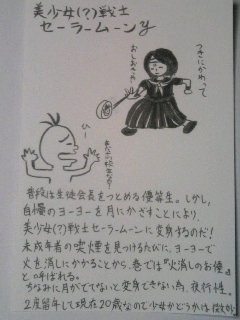 美少女(?)戦士
セーラームーンy
つきにかわって
おしおきよ
ひー
普段は生徒会長をつとめる優等生。しかし、
自慢のヨーヨーを月にかざすことにより、
美少女(?)戦士セーラームーンに変身するのだ!
未成年者の喫煙を見つけるたびに、ヨーヨーで
火を消しにかかることから、巷では『火消しのお優』
と呼ばれる。
ちなみに月がでてないと変身できない為、夜行性。
2度留年して現在20歳なので少女かどうかは